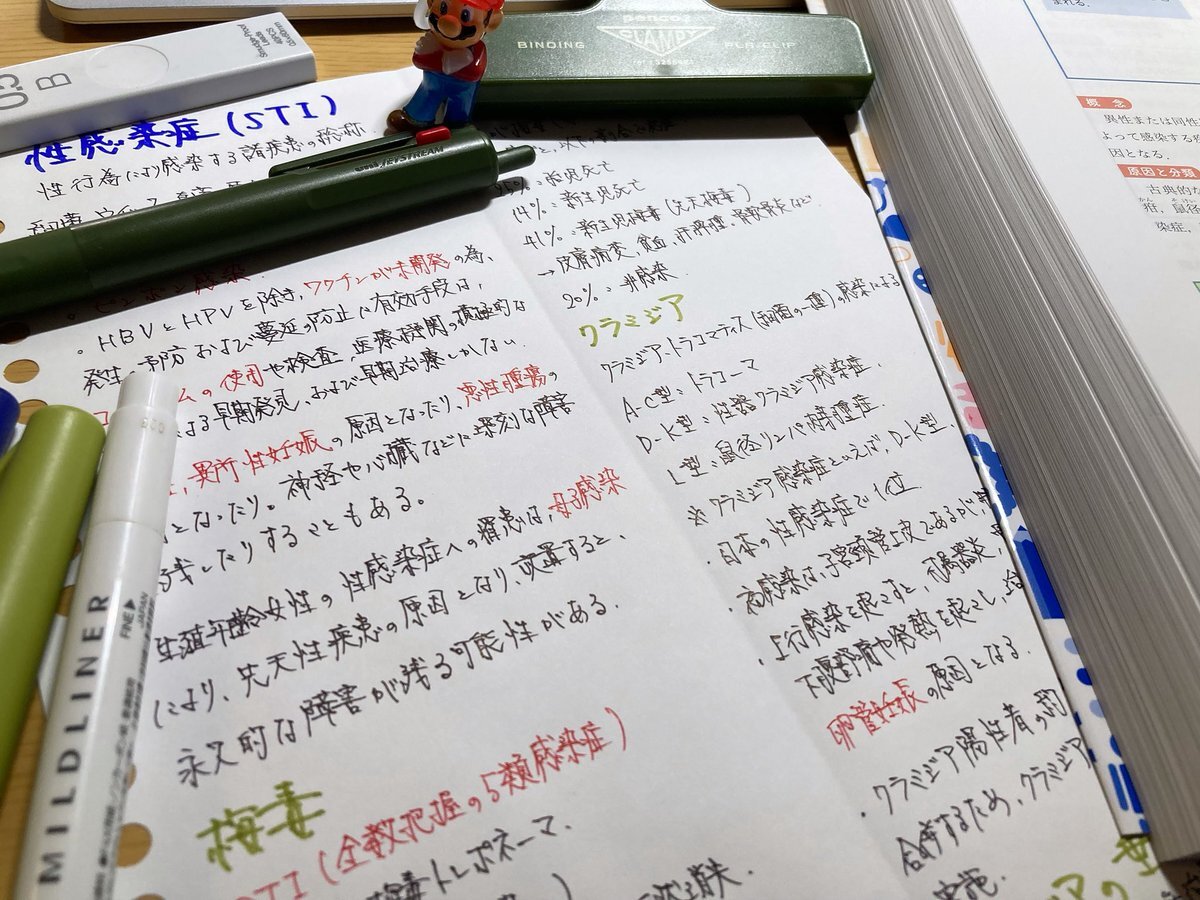 40PCS
Leads
0.5×60mm
Smudge-Proof
0.5
B
penco®
CLAMPY
BINDING
CLIP
性感染症(STI)
性行為により感染する諸疾患の総称.
uni JETSTREAM
。HBVとHPVを除き,ワクチンが未開発の為、
発生の予防および蔓延の防止に有効手段は,
の使用や検査,医療機関の積極的な
よる早期発見、および早期治療しかない.
異所性妊娠の原因となったり,悪性腫瘍の
となったり。神経や心臓などに深刻な障害
残したりすることもある。
生殖年齢女性の性感染症への罹患は,母子感染
により、先天性疾患の原因となり,放置すると、
永久的な障害が残る可能性がある.
梅毒
STI(全数把握の5類感染症)
梅毒トレポネーマ.
消失.
胎児死亡
14%:新生児死亡
41%:新生児梅毒(先天梅毒)
→皮膚病変,貧血,肝脾腫,骨軟骨炎など
20%:非感染
クラミジア
クラミジア・トラコマティス(細菌の一種)の感染による
A-C型:トラコーマ
D-K型:性器クラミジア感染症
L型:鼠径リンパ肉芽腫症.
※クラミジア感染症といえば,D-K型.
・日本の性感染症で1位.
・初感染は,子宮頸管上皮であるが
・上行感染を起こすと,付属器炎,
下腹部痛や発熱を起こし,
卵管妊娠の原因となる.
・クラミジア陽性者の
合併するため,クラミジア
MILDLINER
FINE
JAPAN
まれる.
概念
異性または同性
よって感染する
因となる.
原因と分類
古典的な
疳,鼠径
染症,